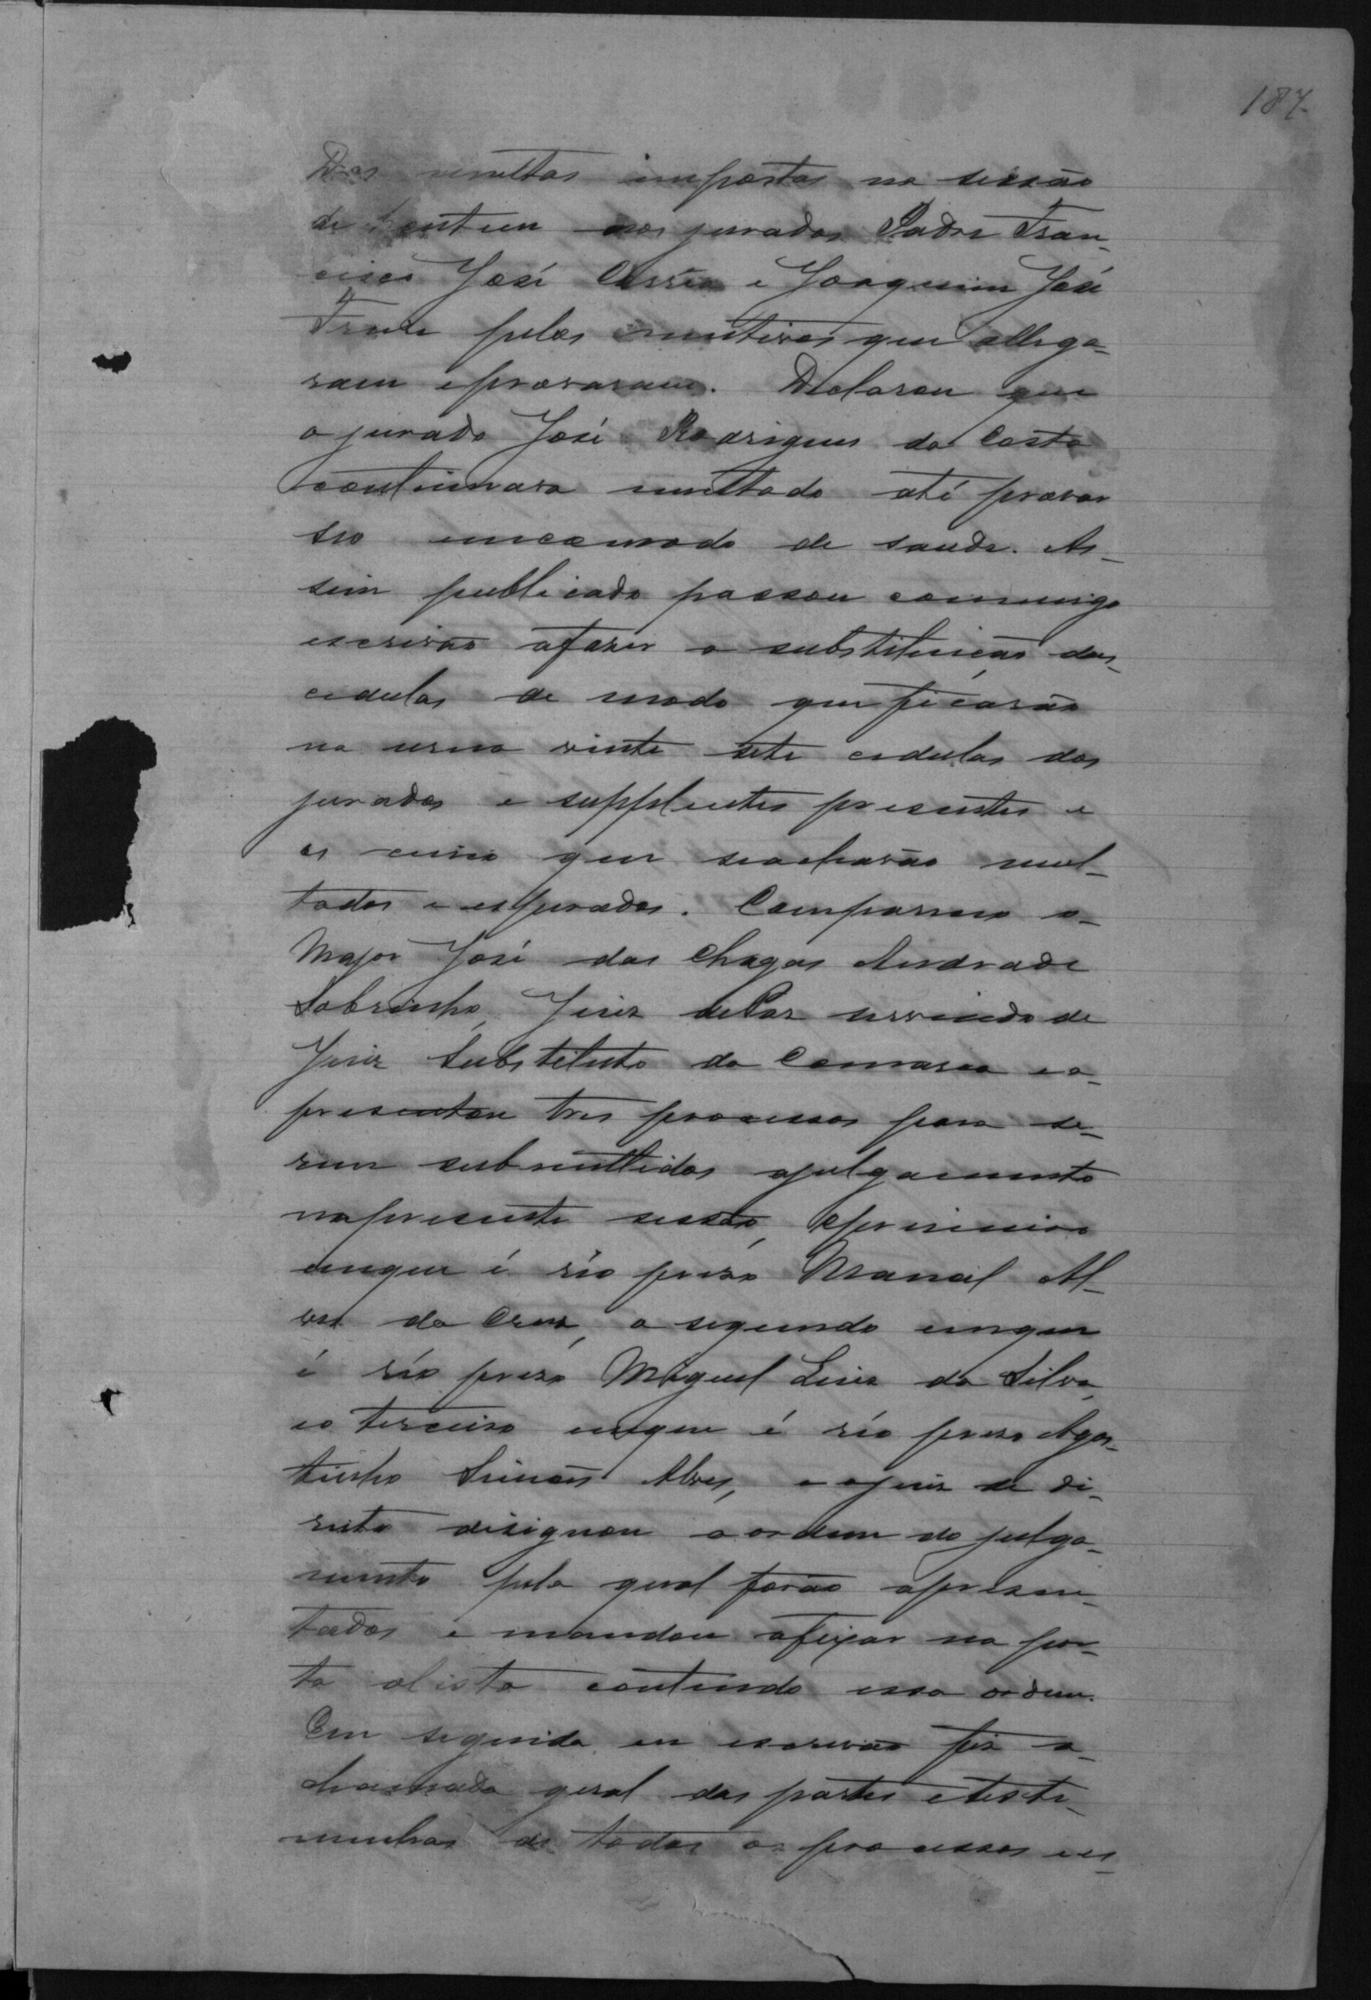 187.
Das multas impostas na sessão
de hontem aos jurados Padre Fran-
cisco José Corrêa e Joaquim José
pelos motivos que allega-
ram e provaram. Declarou que
o jurado José Rodrigues da Costa
continuava multado até provar
seo encomodo de saude. As-
sim publicado passou commigo
escrivão afazer a substituição das
cedulas de modo que ficarão
na urna vinte sete cedulas dos
jurados e supplentes presentes e
as cinco que seacharão mul-
tados e esperados. Compareceo o
Major José das Chagas Andrade
Sobrinho, Juiz dePaz servindo de
Juiz Substituto da Comarca ea-
presentou tres processos para se-
rem submettidos ajulgamento
napresente sessão, oprimeiro
emque é réo prezo Manoel Al-
ves da Cruz, o segundo emque
é réo prezo Miguel Luiz da Silva,
eo terceiro emque é réo prezo Agos-
tinho Simões Alves, e ojuiz de di-
reito designou a ordem do julga-
mento pela qual forão apresen-
tados e mandou afixar na por-
ta alista contendo essa ordem.
Em seguida eu escrivão fiz a
chamada geral das partes eteste-
munhas de todos os processos es-